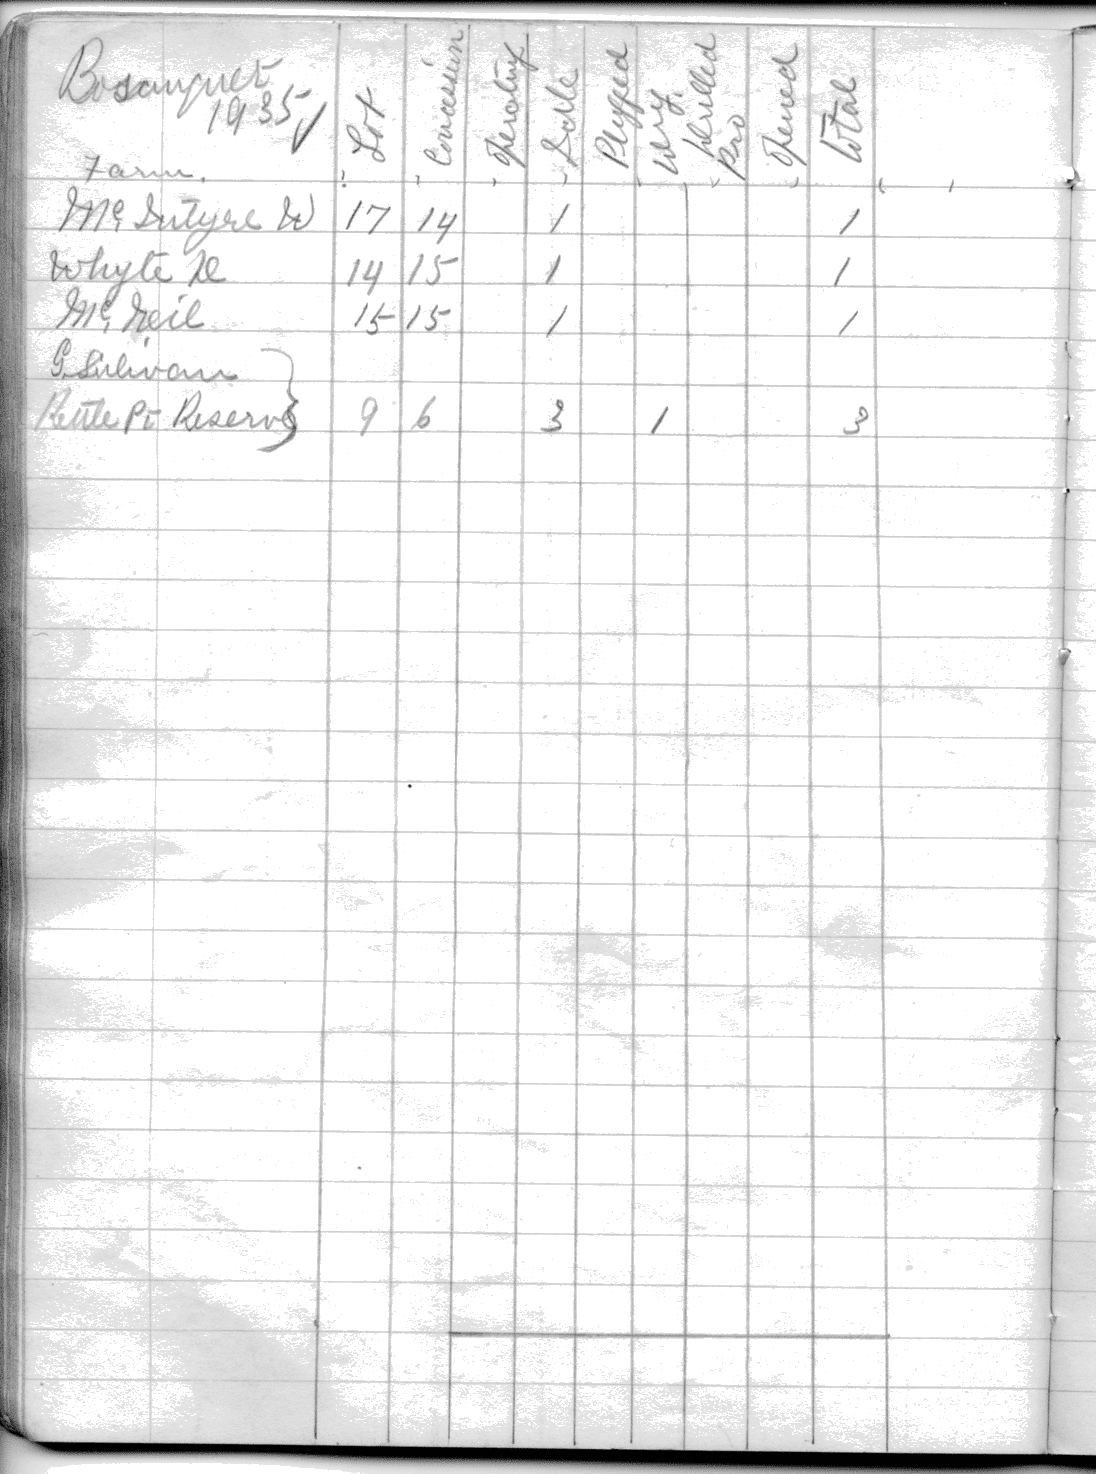 Bosanquet
1935
Farm. Lot Concession Operating Idle Plugged Dry Drilled Pro Opened Total
Mc Intyre W 17 14 1 1
Whyte D 14 15 1 1
Mc Neil 15 15 1 1
G. Sulivan
Kettle Pt Reserve 9 6 3 1 3